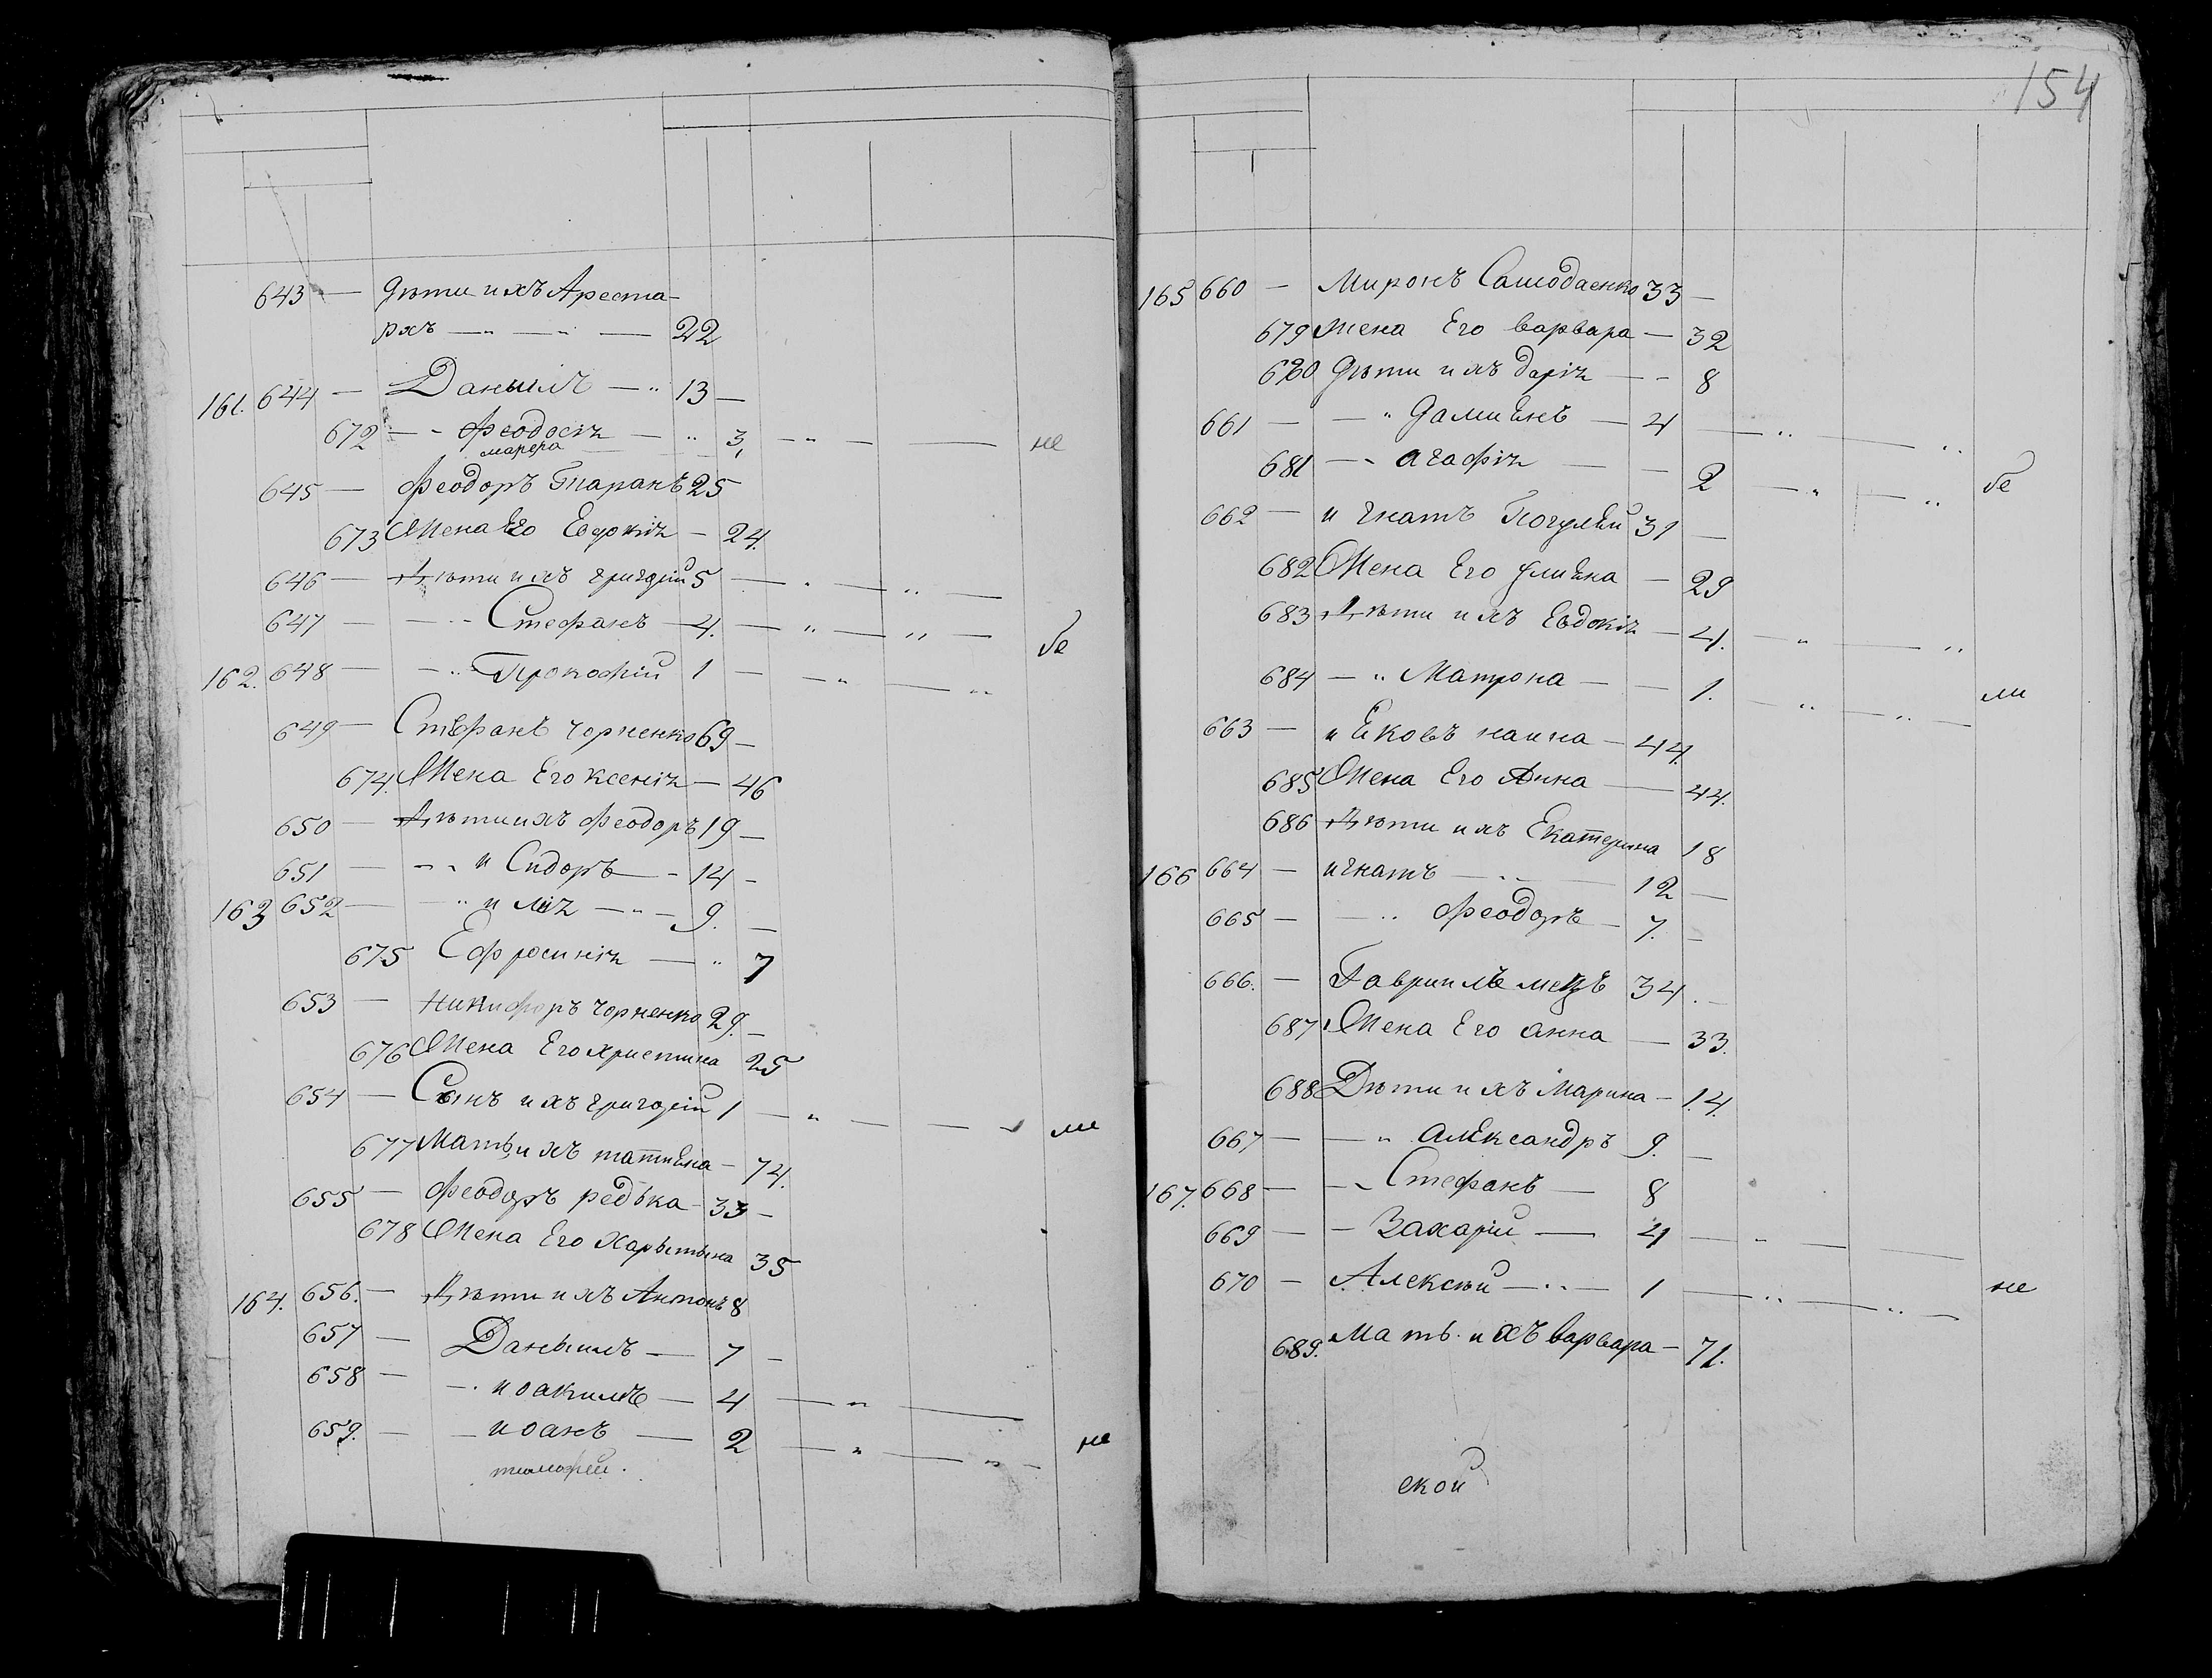 643 — дѣти ихъ Ареста-
рхъ — „ — „ — 22
161. 644 — Даныилъ — „ 13 —
672 — - Феодосія — „ 3, — „ — — не
645 — Феодоръ Таранъ 25
673 Жена Его Евдокія — 24.
646 — Дѣти ихъ григорій 5 — „ — „ —
647 — - - Стефанъ — 4. — „ — „ — бе
162. 648 — - „ Прокофій 1 — — „ — „
649 — Стефанъ Чорненко 69 —
674. Жена Его Ксенія — 46
650 — Дѣти ихъ Феодоръ 19 —
651 — - - и Сидоръ — - 14 -
163 652 — „ и лія — „ — 9. —
675 Ефросинія — „ 7
653 — Никифоръ Чорненко 29. —
676 Жена Его христина 25
654 — Сынъ ихъ григорій 1 — „ — — ли
677 Мать ихъ татиѣна — 74.
655 — Феодоръ редька — 33 —
678 Жена Его Харытына 35
164. 656. — Дѣти ихъ Антонъ 8
657 — Даныилъ — 7 —
658 — - . иоакимъ — 4 — „ —
659. — — иоанъ — 2 — „ — „ — не
тимофей.
154
165 660 — Миронъ Самодаенко 33 —
679 жена Его варвара — 32
680 дѣти ихъ дарія — - 8
661 — — „ дамиѣнъ — 4 — „ — „
681 — - агафія — — 2 — „ — „ бе
662 — и гнатъ Погулѣй 31 —
682 Жена Его улиѣна — 29
683 Дѣти ихъ Евдокія — 4. — „ — „
684 — „ Матрона — — 1. — „ — „ — ли
663 — „ Ѣковъ наина — 44.
685 Жена Его Анна — 44.
686 Дѣти ихъ Екатерина 18
166 664 — игнатъ — „ — 12 —
665 — — „ Феодоръ — 7. —
666. — Гавриилъ мецъ 34. —
687 Жена Его анна — 33.
688 Дѣти ихъ Марина — 14.
667 — — „ алѣксандръ 9. —
167. 668 — - - Стефанъ — 8
669 — — Захарій — 4 — „ — —
670 — Алексѣй — „ — 1 — „ — „ — не
689. Мать ихъ варвара — 71.
ской